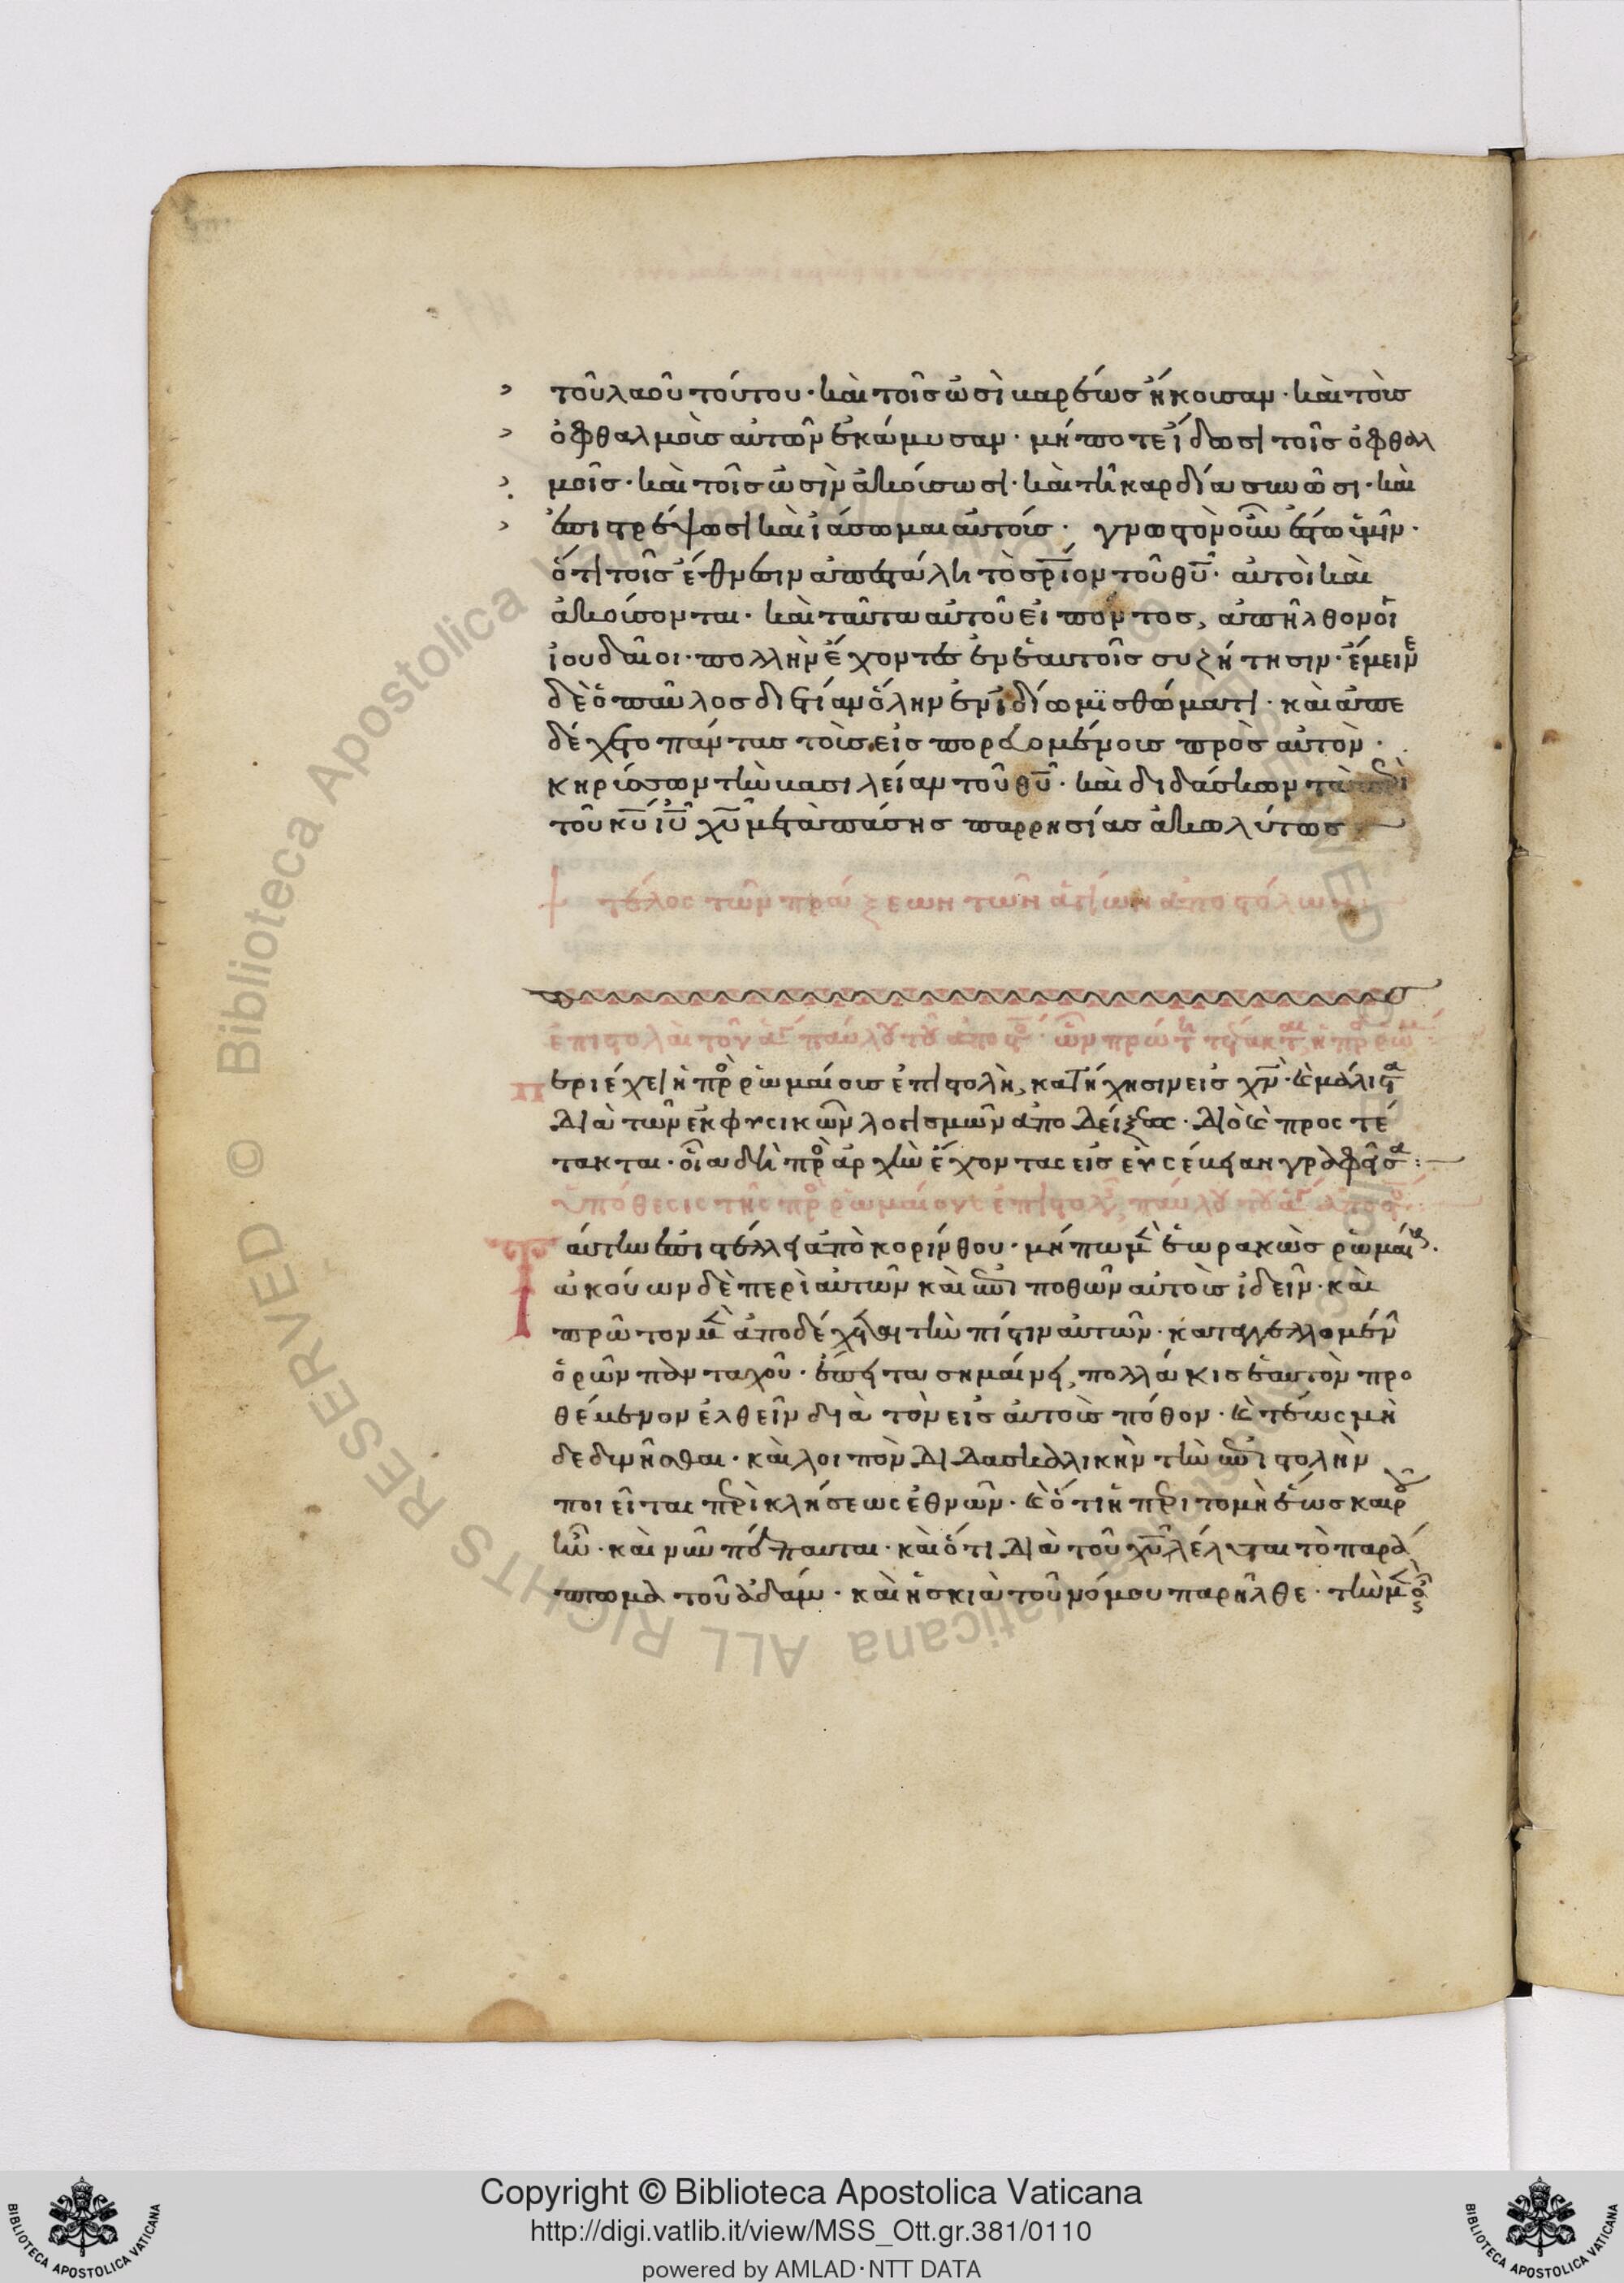 τοῦ λαοῦ τούτου· καὶ τοῖς ὠσὶ βαρέως ἤκουσαν· καὶ τοὺς
ὀφθαλμοὺς αὐτῶν ἐκάμυσαν· μήποτε ἴδωσι τοῖς ὀφθαλ
μοῖς· καὶ τοῖς ὠσὶν ἀκούσωσι· καὶ τῆ καρδία συνῶσι· καὶ
ἐπιστρέψωσι καὶ ἰάσωμαι αὐτούς· γνωστὸν οὖν ἔστω ὑμῖν·
ὅτι τοῖς ἔθνεσιν ἀπεστάλη τὸ σρίον τοῦ θυ· αὐτοὶ καὶ
ἀκούσονται· καὶ ταῦτα αὐτοῦ εἰπόντος, ἀπῆλθον οἱ
ἰουδαῖοι· πολλὴν ἔχοντες ἐν ἑαυτοῖς συζήτησιν· ἔμεινε
δὲ ὁ παῦλος διετίαν ὅλην ἐν ἰδίω μισθώματι· καὶ ἀπε
δέχετο πάντας τοὺς εἰσπορευομένους πρὸς αὐτὸν·
κηρύσσων τὴν βασιλείαν τοῦ θυ· καὶ διδάσκων τὰ περὶ
τοῦ κυ ιυ χυ μετὰ πάσης παρρησίας ἀκωλύτως
τέλος τῶν πράξεων τῶν ἁγίων ἀποστόλων
ἐπιστολαὶ τοῦ ἁγ παύλου τοῦ ἀποστ· ὧν πρώτη τέτακται ἡ πρ ρωμ
Περιέχει ἡ πρὸ ῥωμαίους ἐπιστολὴ, κατήχησιν εἰς χν· καὶ μάλιστα
διὰ τῶν ἐκ φυσικῶν λογισμῶν ἀποδείξεως· διὸ καὶ προστέ
τακται· οἷα δὴ πρὸ ἀρχὴν ἔχοντας εἰς εὐσέβειαν γραφεῖσα:
ὑπόθεσις τῆς πρὸ ῥωμαίους ἐπιστολῆς παύλου τοῦ ἀποστ
Ταύτην ἐπιστέλλει ἀπὸ κορίνθου· μήπω μὲν ἑωρακὼς ῥωμαίους·
ἀκούων δὲ περὶ αὐτῶν καὶ ἐπιποθῶν αὐτοὺς ἰδεῖν· καὶ
πρῶτον μὲν ἀποδέχεται τὴν πίστιν αὐτῶν· καταγγελλομένην
ὁρῶν πανταχοῦ· ἔπειτα σημαίνει, πολλάκις ἑαυτὸν προ
θέμενον ἐλθεῖν διὰ τὸν εἰς αὐτοὺς πόθον· καὶ τέως μὴ
δεδυνῆσθαι· καὶ λοιπὸν διδασκαλικὴν τὴν ἐπιστολὴν
ποιεῖται περὶ κλήσεως ἐθνῶν· καὶ ὅτι ἡ περιτομὴ ἕως καιροῦ
ἦν· καὶ νῦν πέπαυται· καὶ ὅτι διὰ τοῦ χυ λέλυται τὸ παρά
πτωμα τοῦ ἀδάμ· καὶ ἡ σκιὰ τοῦ νόμου παρῆλθε· τὴν μὲν
Copyright © Biblioteca Apostolica Vaticana
http://digi.vatlib.it/view/MSS_Ott.gr.381/0110
powered by AMLAD·NTT DATA